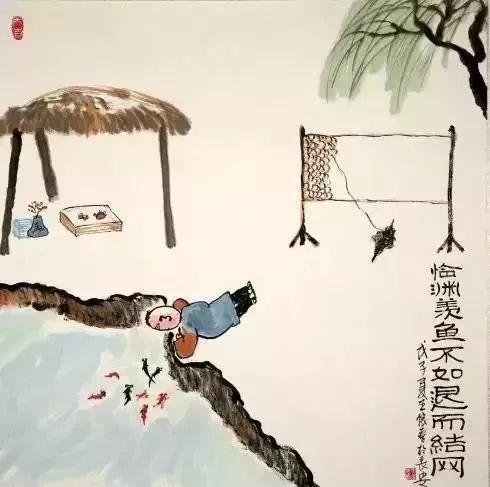 临渊羡鱼不如退而结网
戊子夏王於长安